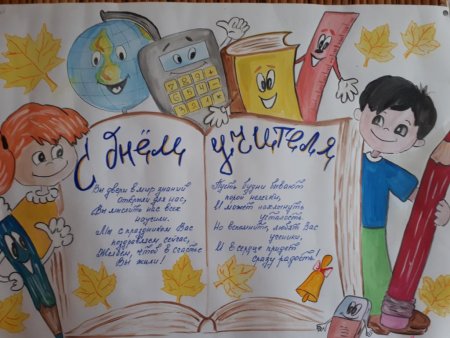 С днём учителя
Вы двери в мир знаний
открыли для нас,
Вы мыслить нас всех
научили.
Мы с праздником Вас
поздравляем сейчас,
Желаем, чтоб в счастье
Вы жили!
Пусть будни бывают
порой нелегки,
И может нахлынуть
усталость.
Но вспомните, любят Вас
ученики,
И в сердце придёт
сразу радость!